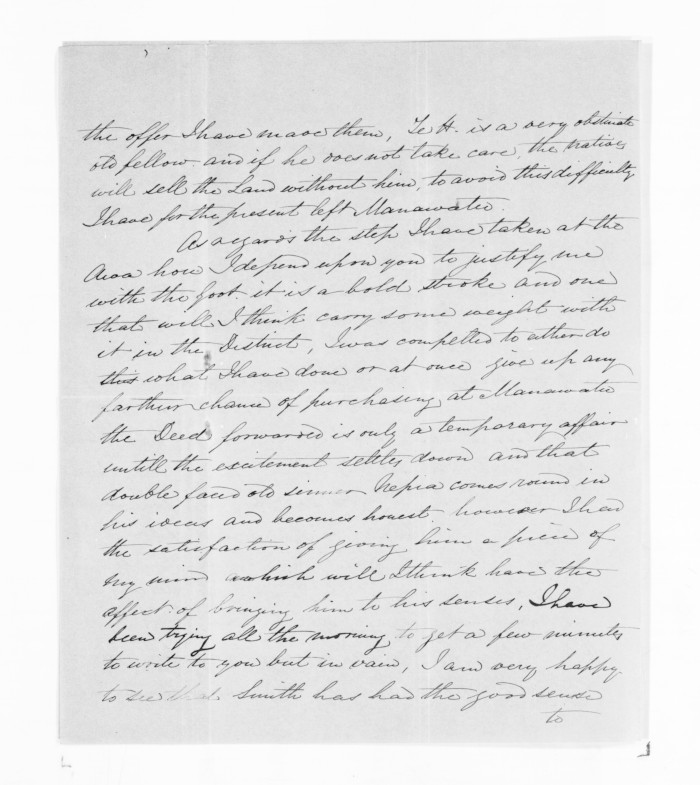 the offer I have made them, Te H. is a very obstinate
old fellow and if he does not take care, the natives
will sell the Land without him, to avoid this difficulty
I have for the present left Manawatu.
As regards the step I have taken at the
Awa hou I depend upon you to justify me
with the Govt. it is a bold stroke and one
that will I think carry some weight with
it in the District, I was compelled to either do
this what I have done or at once give up any
farthur chance of purchasing at Manawatu
the Deed forwarded is only a temporary affair
untill the excitement settles down and that
double faced old sinner Nepia comes round in
his ideas and becomes honest. however I had
the satisfaction of giving him a piece of
my mind which will I think have the
affect of bringing him to his senses, I have
been trying all the morning to get a few minutes
to write to you but in vain, I am very happy
to see that Smith has had the good sense
to